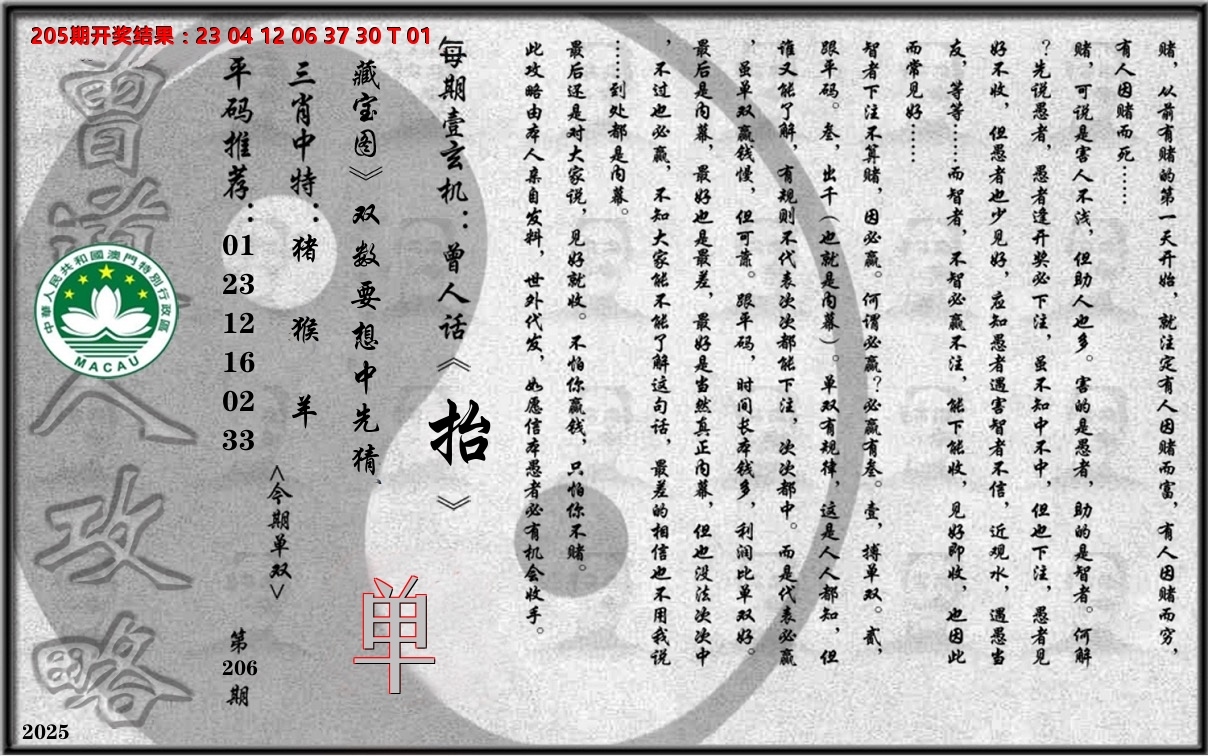 205期开奖结果：23 04 12 06 37 30 T 01
赌，从前有赌的第一天开始，就注定有人因赌而富，有人因赌而穷，
有人因赌而死……
赌，可说是害人不浅，但助人也多。害的是愚者，助的是智者。何解
？先说愚者，愚者逢开奖必下注，虽不知中不中，但也下注，愚者见
好不收，但愚者也少见好，应知愚者遇害智者不信，近观水，遇愚当
友，等等……而智者，不智必赢不注，能下能收，见好即收，也因此
而常见好……
智者下注不算赌，因必赢。何谓必赢？必赢有叁。壹，搏单双。贰，
跟平码。叁，出千（也就是内幕）。单双有规律，这是人人都知，但
谁又能了解，有规则不代表次次都能下注，次次都中。而是代表必赢
，虽单双赢钱慢，但可靠。跟平码，时间长本钱多，利润比单双好。
最后是内幕，最好也是最差，最好是当然真正内幕，但也没法次次中
，不过也必赢，不知大家能不能了解这句话，最差的相信也不用我说
……到处都是内幕。
最后还是对大家说，见好就收。不怕你赢钱，只怕你不赌。
此攻略由本人亲自发料，世外代发，如愿信本愚者必有机会收手。
每期壹玄机：曾人话《抬》
藏宝图》双数要想中先猜、
单
三肖中特：猪 猴 羊
<今期单双>
平码推荐：01 23 12 16 02 33
第206期
曾道人攻略
中華人民共和國澳門特別行政區
MACAU
2025